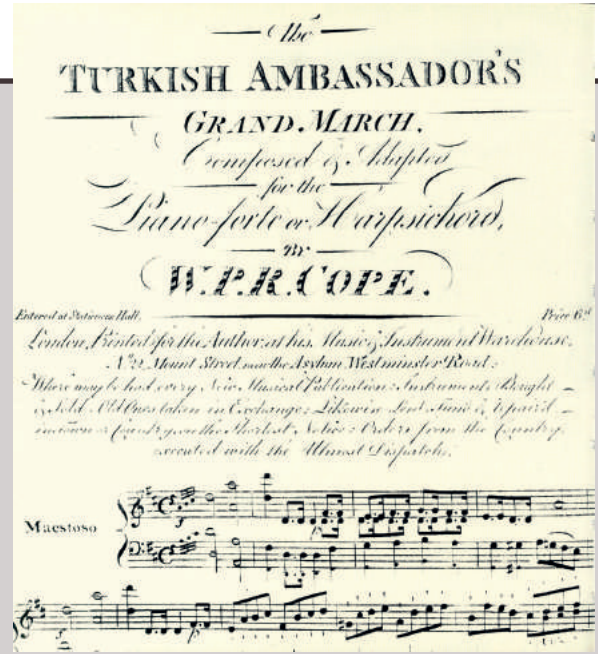 The
TURKISH AMBASSADOR'S
GRAND MARCH.
Composed & Adapted
for the
Piano-forte or Harpsichord,
BY
W.P.R. COPE.
Entered at Stationers Hall. Price 6.d
London, Printed for the Author, at his Music & Instrument Warehouse,
No. 22 Mount Street, near the Asylum, Westminster Road;
Where may be had every New Musical Publication; Instruments Bought
& Sold, Old Ones taken in Exchange; Likewise Lent, Tuned, & Repair'd
in Town & Country, on the Shortest Notice; Orders from the Country,
executed with the Utmost Dispatch.
Maestoso